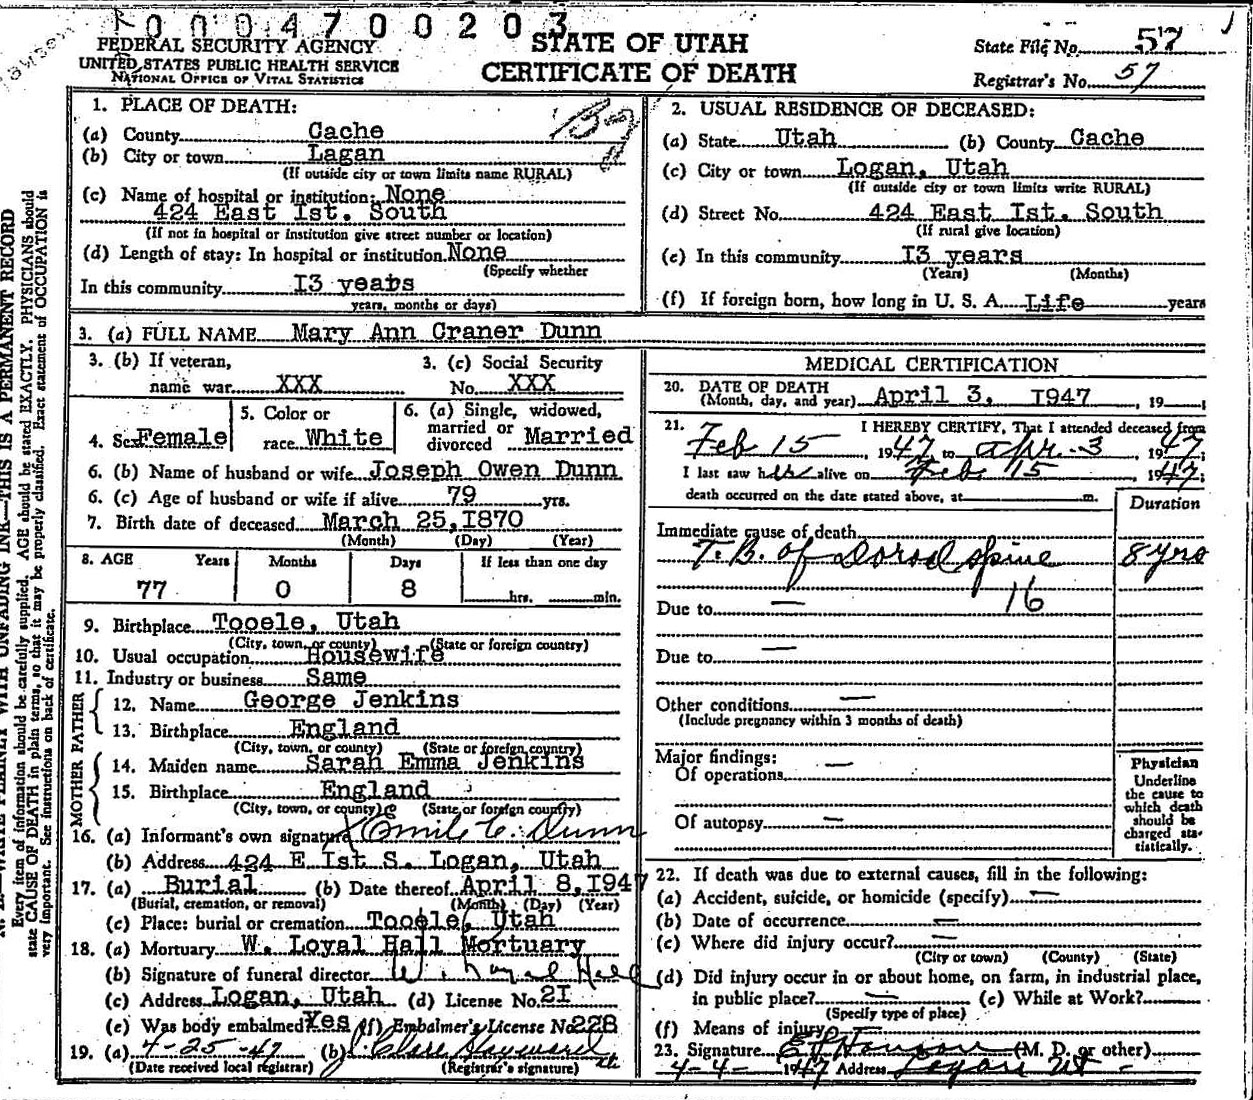 0004700203
FEDERAL SECURITY AGENCY
UNITED STATES PUBLIC HEALTH SERVICE
NATIONAL OFFICE OF VITAL STATISTICS
STATE OF UTAH
CERTIFICATE OF DEATH
State File No. 57
Registrar's No. 57
1. PLACE OF DEATH:
(a) County Cache
(b) City or town Lagan
(If outside city or town limits name RURAL)
(c) Name of hospital or institution: None
424 East Ist. South
(If not in hospital or institution give street number or location)
(d) Length of stay: In hospital or institution None
(Specify whether
In this community I3 years
years, months or days)
2. USUAL RESIDENCE OF DECEASED:
(a) State Utah (b) County Cache
(c) City or town Logan, Utah
(If outside city or town limits write RURAL)
(d) Street No. 424 East Ist. South
(If rural give location)
(e) In this community I3 years
(Years) (Months)
(f) If foreign born, how long in U. S. A. Life years
3. (a) FULL NAME Mary Ann Craner Dunn
3. (b) If veteran,
name war XXX
3. (c) Social Security
No. XXX
4. Sex Female
5. Color or
race White
6. (a) Single, widowed,
married or
divorced Married
6. (b) Name of husband or wife Joseph Owen Dunn
6. (c) Age of husband or wife if alive 79 yrs.
7. Birth date of deceased March 25, I870
(Month) (Day) (Year)
8. AGE Years Months Days If less than one day
77 0 8 hrs. min.
9. Birthplace Tooele, Utah
(City, town, or county) (State or foreign country)
10. Usual occupation Housewife
11. Industry or business Same
FATHER
12. Name George Jenkins
13. Birthplace England
(City, town, or county) (State or foreign country)
MOTHER
14. Maiden name Sarah Emma Jenkins
15. Birthplace England
(City, town, or county) (State or foreign country)
16. (a) Informant's own signature Dunn
(b) Address 424 E Ist S. Logan, Utah
17. (a) Burial (b) Date thereof April 8, I947
(Burial, cremation, or removal) (Month) (Day) (Year)
(c) Place: burial or cremation Tooele, Utah
18. (a) Mortuary W. Loyal Hall Mortuary
(b) Signature of funeral director W. Loyal Hall
(c) Address Logan, Utah (d) License No. 2I
(e) Was body embalmed? Yes (f) Embalmer's License No. 228
19. (a) 4-25-47 (b)
(Date received local registrar) (Registrar's signature)
MEDICAL CERTIFICATION
20. DATE OF DEATH
(Month, day, and year) April 3, I947, 19 ;
21. I HEREBY CERTIFY, That I attended deceased from
Feb 15, 1947, to Apr. 3, 1947;
I last saw her alive on Feb. 15, 1947;
death occurred on the date stated above, at m.
Duration
Immediate cause of death
T. B. of Dorsal spine 8 yrs
16
Due to —
Due to —
Other conditions —
(Include pregnancy within 3 months of death)
Major findings:
Of operations —
Of autopsy —
Physician
Underline
the cause to
which death
should be
charged sta-
tistically.
22. If death was due to external causes, fill in the following:
(a) Accident, suicide, or homicide (specify) —
(b) Date of occurrence —
(c) Where did injury occur? —
(City or town) (County) (State)
(d) Did injury occur in or about home, on farm, in industrial place,
in public place? — (e) While at Work?
(Specify type of place)
(f) Means of injury —
23. Signature (M. D. or other)
4-4- 1947 Address Logan Ut -
N. B.—WRITE PLAINLY WITH UNFADING INK—THIS IS A PERMANENT RECORD
Every item of information should be carefully supplied. AGE should be stated EXACTLY. PHYSICIANS should
state CAUSE OF DEATH in plain terms, so that it may be properly classified. Exact statement of OCCUPATION is
very important. See instructions on back of certificate.